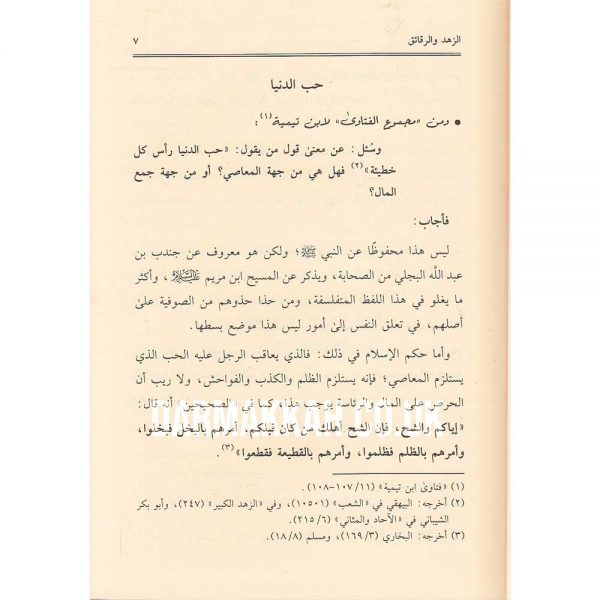 الزهد والرقائق ٧
حب الدنيا
• ومن «مجموع الفتاوىٰ» لابن تيمية(١):
وسُئل: عن معنىٰ قول من يقول: «حب الدنيا رأس كل
خطيئة»(٢) فهل هي من جهة المعاصي؟ أو من جهة جمع
المال؟
فأجاب:
ليس هذا محفوظًا عن النبي ﷺ؛ ولكن هو معروف عن جندب بن
عبد اللَّه البجلي من الصحابة، ويذكر عن المسيح ابن مريم عليه السلام، وأكثر
ما يغلو في هذا اللفظ المتفلسفة، ومن حذا حذوهم من الصوفية علىٰ
أصلهم، في تعلق النفس إلىٰ أمور ليس هذا موضع بسطها.
وأما حكم الإسلام في ذلك: فالذي يعاقب الرجل عليه الحب الذي
يستلزم المعاصي؛ فإنه يستلزم الظلم والكذب والفواحش، ولا ريب أن
الحرص على المال والرئاسة يوجب هذا، كما في «الصحيحين» أنه قال:
«إياكم والشح، فإن الشح أهلك من كان قبلكم، أمرهم بالبخل فبخلوا،
وأمرهم بالظلم فظلموا، وأمرهم بالقطيعة فقطعوا»(٣).
(١) «فتاوىٰ ابن تيمية» (١١/ ١٠٧-١٠٨).
(٢) أخرجه: البيهقي في «الشعب» (١٠٥٠١)، وفي «الزهد الكبير» (٢٤٧)، وأبو بكر
الشيباني في «الآحاد والمثاني» (٦/ ٢١٥).
(٣) أخرجه: البخاري (٣/ ١٦٩)، ومسلم (٨/ ١٨).
DARMAKKAH.CO.UK